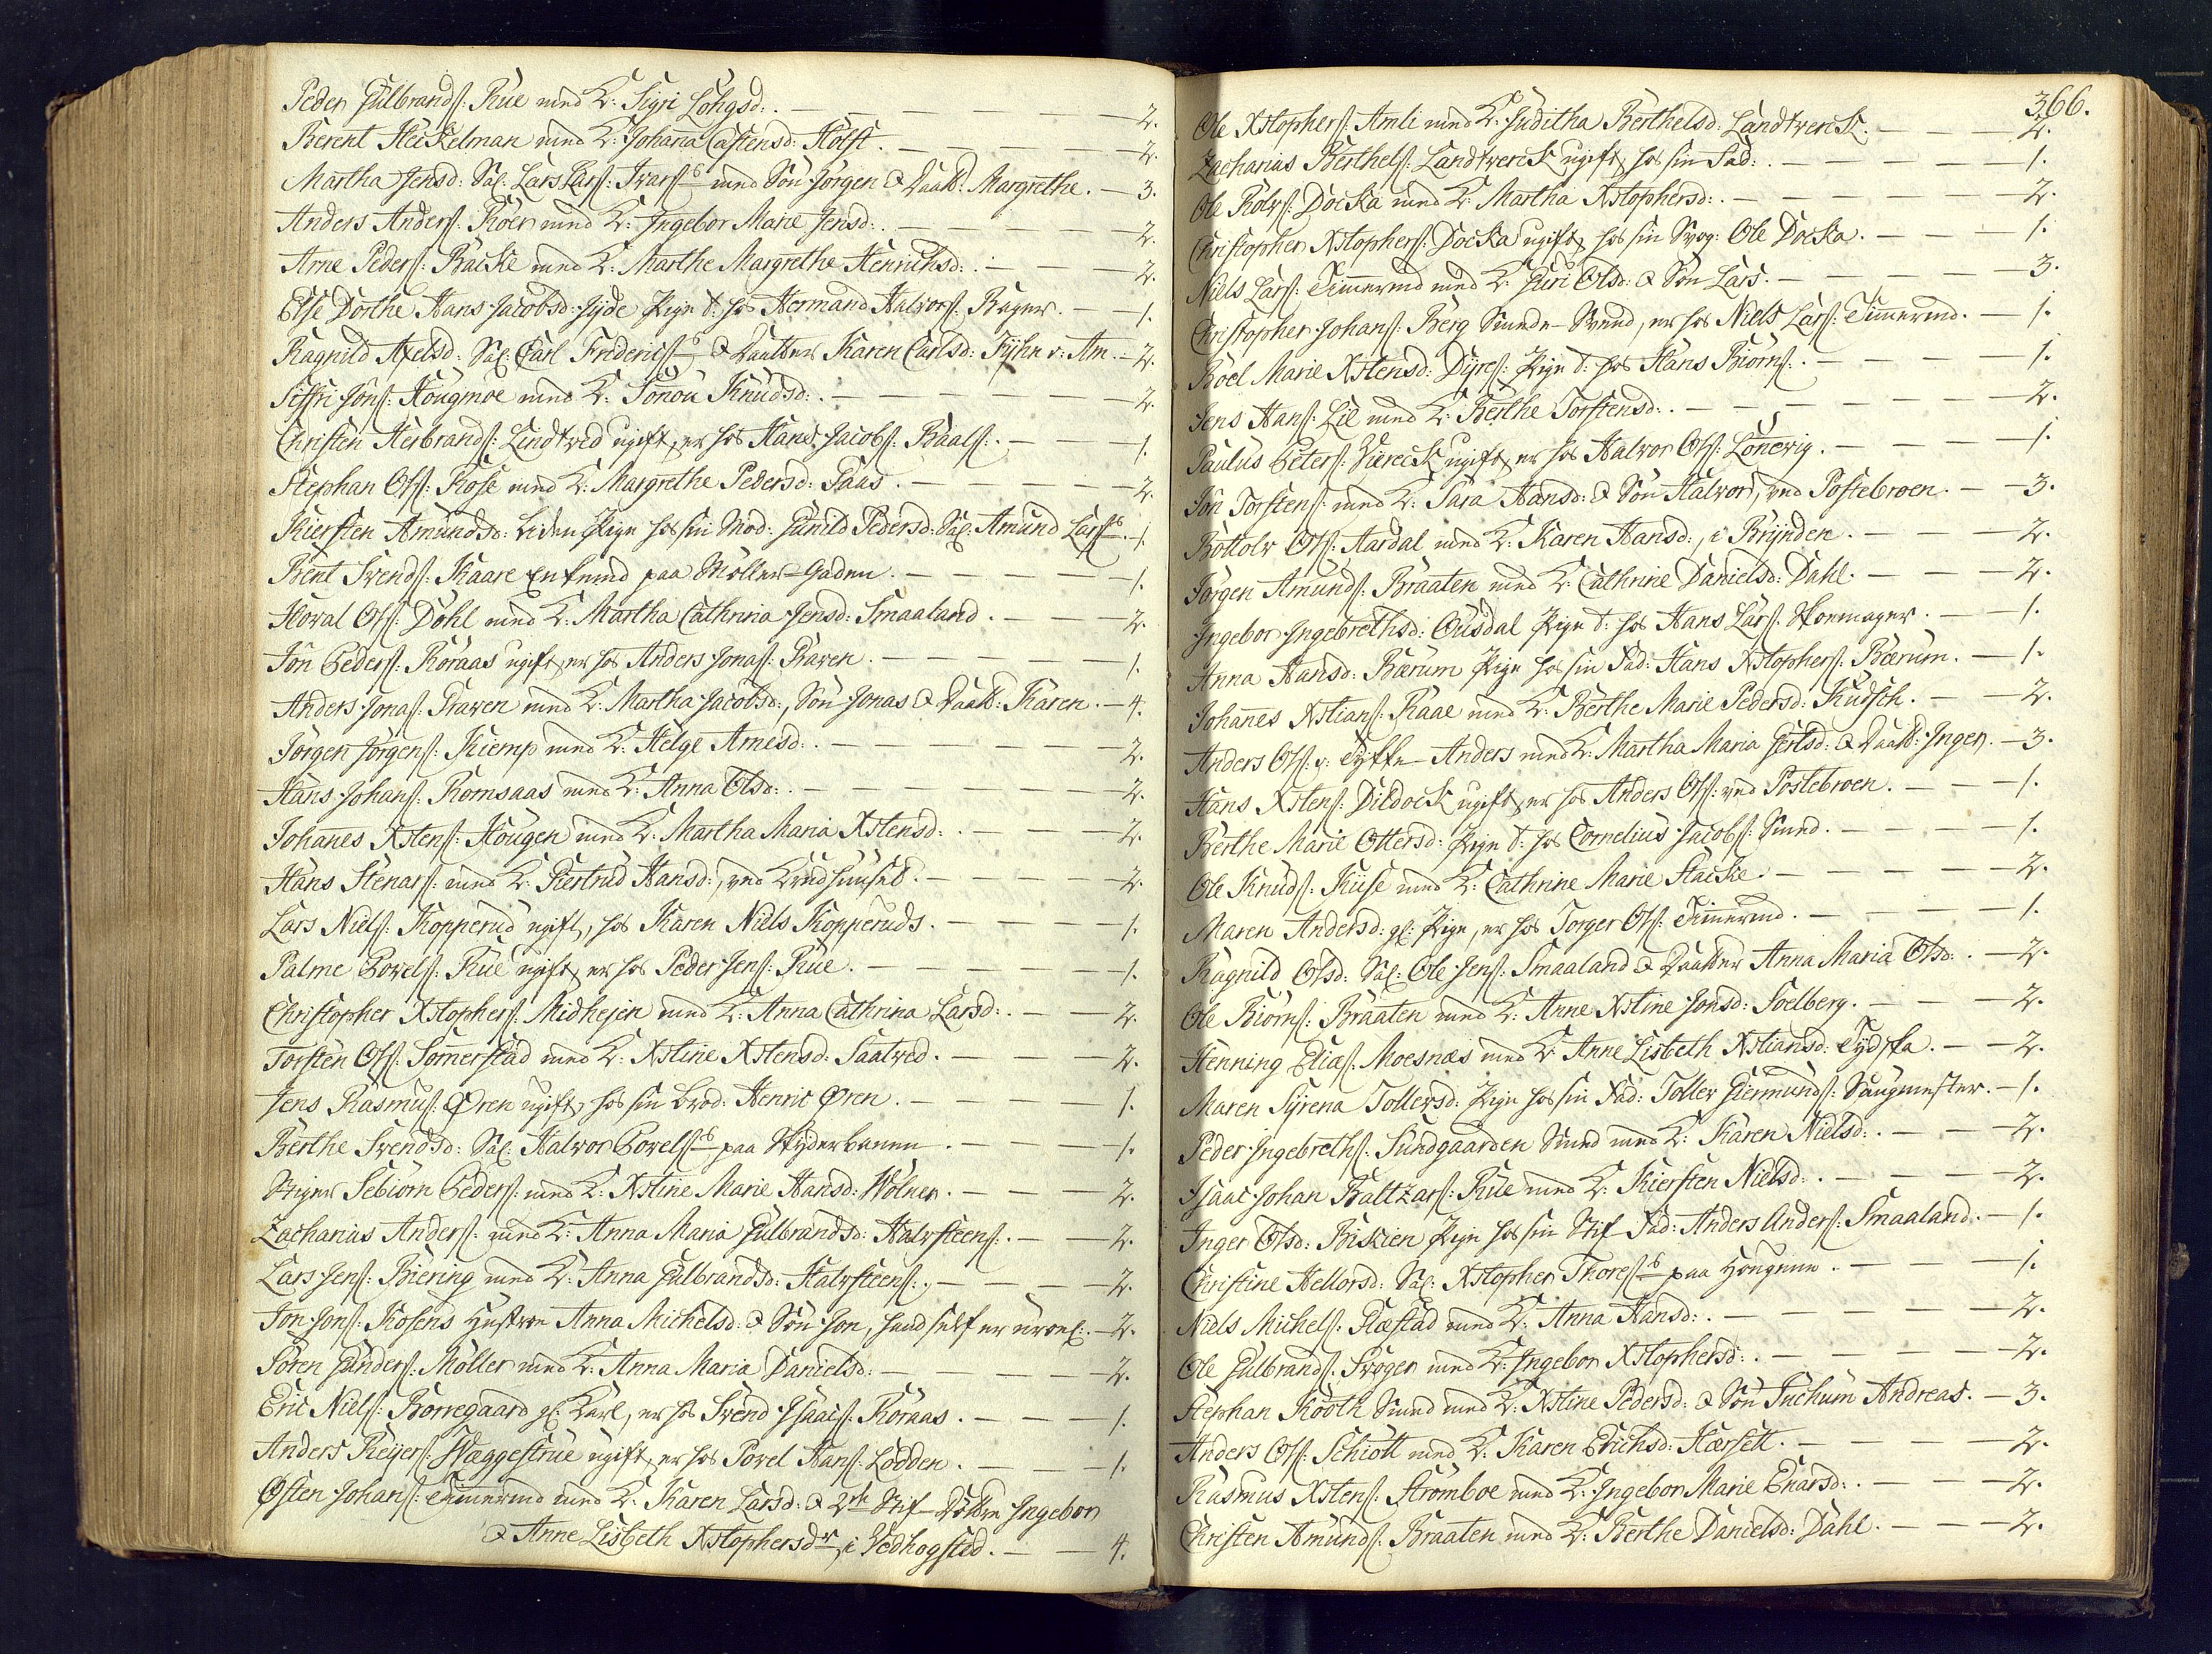 Peder Gulbrands: Rue med K: Sigri Lohgsd: . — 2.
Berent Heckelman med K: Johanna Castensd: Holst. — 2.
Martha Jensd: Sal: Lars Lars: Ivars: med Søn Jørgen & Daatt: Margrethe. — 3.
Anders Anders: Roer med K: Ingebor Marie Jensd: . — 2.
Arne Peders: Backe med K: Marthe Margrethe Henrichsd: . — 2.
Else Dorthe Hans Jacobsd: Jyde Pige t: hos Hermand Halvors: Bager. — 1.
Ragnild Axelsd: Sal: Carl Frederics: & Daatter Karen Carlsd: Fyhn v: Am. — 2.
Siffri Jons: Hougmoe med K: Tonou Knudsd: . — 2.
Christen Herbrands: Lindtved ugift, er hos Hans Jacobs: Baals: . — 1.
Stephan Ols: Rose med K: Margrethe Pedersd: Saas. — 2.
Kiersten Amundsd: liden Pige hos sin Mod: Gunild Pedersd: Sal: Amund Lars: — 1.
Bent Svends: Kaare Enkemd paa Møller-Gaden. — 1.
Hoval Ols: Dohl med K: Martha Cathrina Jensd: Smaaland. — 2.
Jon Peders: Roraas ugift, er hos Anders Jonas: Raven. — 1.
Anders Jonas: Raven med K: Martha Jacobsd:, Søn Jonas & Daatt: Karen. — 4.
Jørgen Jørgens: Kiemp med K: Helge Arnesd: . — 2.
Hans Johans: Romsaas med K: Anna Olsd: . — 2.
Johanes Xstens: Hougen med K: Martha Maria Xstensd: . — 2.
Hans Stenars: med K: Giertrud Hansd:, ved — 2.
Lars Niels: Kopperud ugift, hos Karen Niels Kopperuds. — 1.
Palme Povels: Rue ugift, er hos Peder Jens: Rue. — 1.
Christopher Xstophers: Midhejen med K: Anna Cathrina Larsd: . — 2.
Torsten Ols: Sommerstad med K: Xstine Xstensd: Saatved. — 2.
Jens Rasmus: Øren ugift, hos sin Brod: Henric Øren. — 1.
Berthe Svendsd: Sal: Halvor Povels: paa Skyderbanen. — 1.
Stiger Sebiørn Peders: med K: Xstine Marie Hansd: Wølner. — 2.
Zacharias Anders: med K: Anna Maria Gulbrandsd: Halvsteens: . — 2.
Lars Jens: Biering med K: Anna Gulbrandsd: Halvsteens: . — 2.
Jon Jons: Rosens Hustroe Anna Michelsd: & Søn Jon, hand self er — 2.
Søren Gunders: Møller med K: Anna Maria Danielsd: — 2.
Eric Niels: Borregaard gl: Karl, er hos Svend Isaacs: Roraas. — 1.
Anders Reyers: Waggestrue ugift, er hos Povel Hans: Lodden. — 1.
Østen Johans: Timmermd med K: Karen Larsd: & 2de Stif-Døttre Ingebor
& Anne Lisbeth Xstophersdr i Vedhogsted. — 4.
366.
Ole Xstophers: Amli med K: Juditha Berthelsd: Landtverck. — 2.
Zacharias Berthels: Landtverck ugift, hos sin Fad: . — 1.
Ole Rolvs: Docka med K: Martha Xstophersd: . — 2.
Christopher Xstophers: Docka ugift, hos sin Svog: Ole Docka. — 1.
Niels Lars: Timmermd med K: Guri Olsd: & Søn Lars. — 3.
Christopher Johans: Berg Smede-Svend, er hos Niels Lars: Timmermd. — 1.
Boel Marie Xstensd: Dyres: Pige t: hos Hans Biørns: . — 1.
Jens Hans: Lie med K: Berthe Torstensd: . — 2.
Paulus Peters: Viereck ugift, er hos Halvor Ols: Lonevig. — 1.
Jon Torstens: med K: Sara Hansd: & Søn Halvor, ved Postebroen. — 3.
Bottolv Ols: Aardal med K: Karen Hansd:, i Brynden. — 2.
Jørgen Amunds: Braaten med K: Cathrine Danielsd: Dahl. — 2.
Ingebor Ingebrethsd: Ousdal Pige t: hos Hans Lars: Skoemager. — 1.
Anna Hansd: Bærum Pige hos sin Fad: Hans Xstophers: Bærum. — 1.
Johannes Xstians: Raae med K: Berthe Marie Pedersd: Kudsch. — 2.
Anders Ols: v: Tyffe-Anders med K: Martha Maria Gertsd: & Daatt: Inger. — 3.
Hans Xstens: Dildock ugift, er hos Anders Ols: ved Postebroen. — 1.
Berthe Marie Ottersd: Pige t: hos Cornelius Jacobs: Smed. — 1.
Ole Knuds: Kiise med K: Cathrine Marie Stacke. — 2.
Maren Andersd: gl: Pige, er hos Torger Ols: Timmermd. — 1.
Ragnild Olsd: Sal: Ole Jens: Smaaland & Daatter Anna Maria Olsd: . — 2.
Ole Biørns: Braaten med K: Anne Xstine Jonsd: Soelberg. — 2.
Henning Elias: Moesnæs med K: Anne Lisbeth Xstiansd: Tydska. — 2.
Maren Syrena Tollersd: Pige hos sin Fad: Toller Giermunds: Saugmester. — 1.
Peder Ingebreths: Sundgaarden Smed med K: Karen Nielsd: . — 2.
Isaac Johan Baltzars: Rue med K: Kiersten Nielsd: . — 2.
Inger Olsd: Biskien Pige hos sin Stif-Fad: Anders Anders: Smaaland. — 1.
Christine Hellorsd: Sal: Xstopher Thores: paa Hougene. — 1.
Niels Michels: Ræstad med K: Anna Hansd: . — 2.
Ole Gulbrands: Svoger med K: Ingebor Xstophersd: . — 2.
Stephan Kooth Smed med K: Xstine Pedersd: & Søn Juchum Andreas. — 3.
Anders Ols: Schiøtt med K: Karen Erichsd: Hærsett. — 2.
Rasmus Xstens: Strømboe med K: Ingebor Marie Enarsd: . — 2.
Christen Amunds: Braaten med K: Berthe Danielsd: Dahl. — 2.